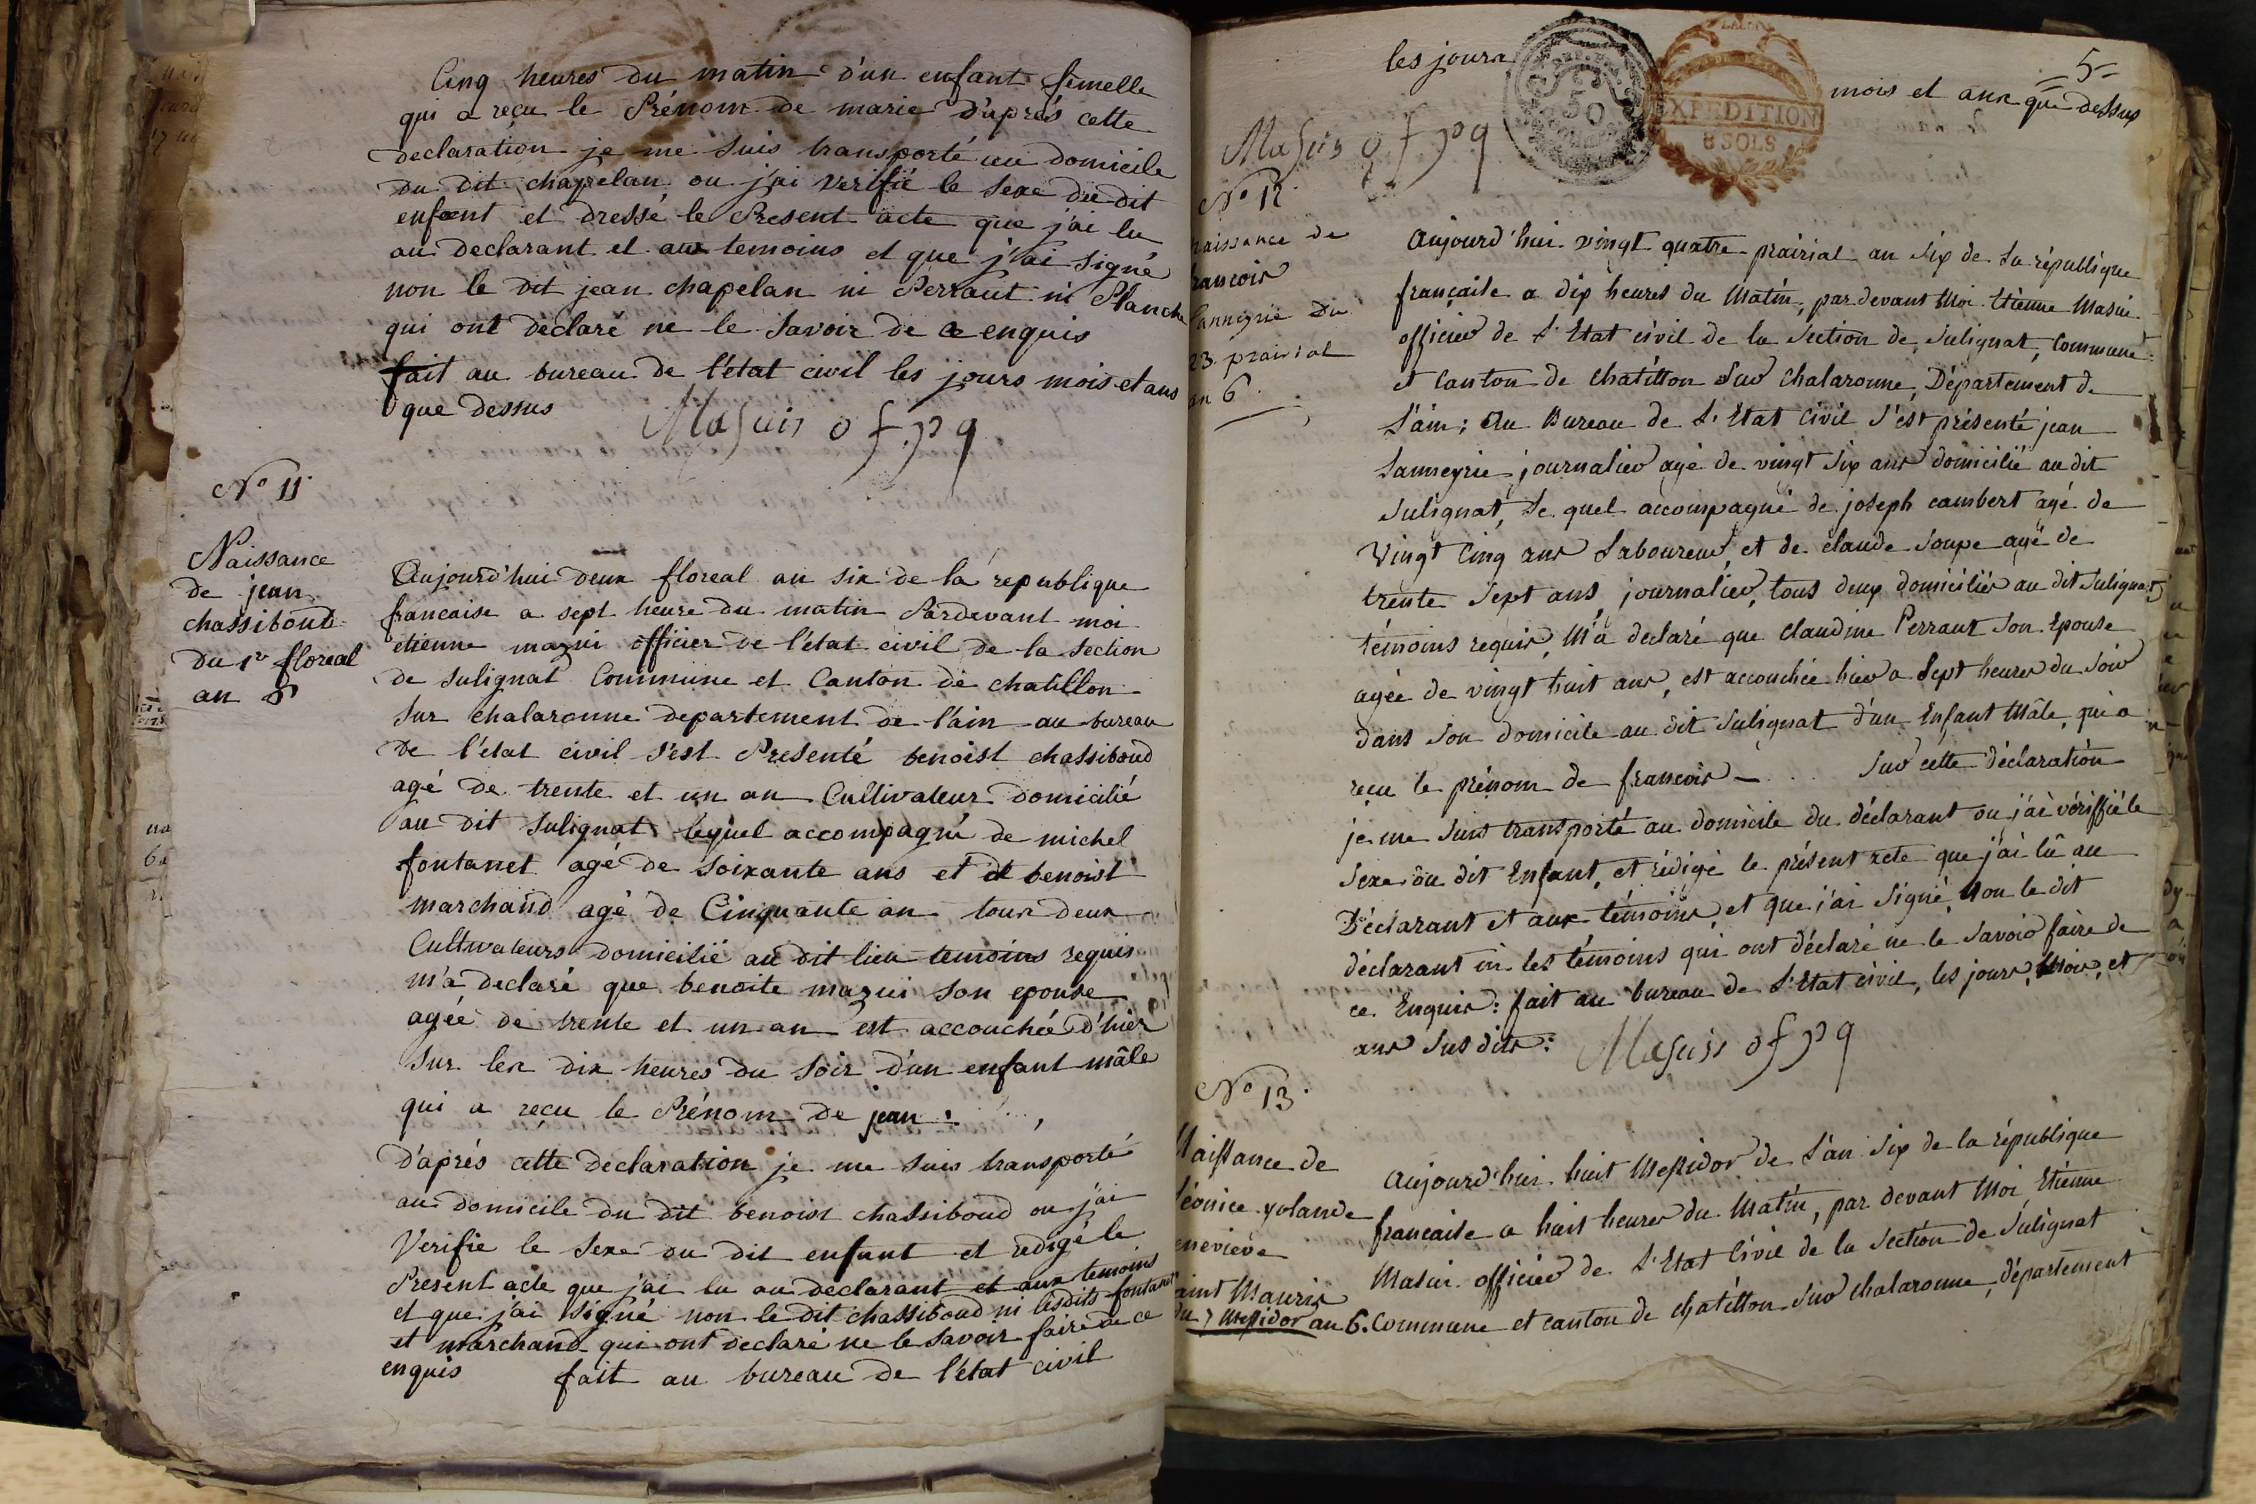 Cinq heures du matin d'un enfant femelle
qui a reçu le Prénom de marie D'aprés cette
declaration je me suis transporté au domicile
du dit chapelan ou j'ai verifié le sexe du dit
enfant et dressé le Present acte que j'ai lu
au declarant et aux temoins et que j'ai signé
non le dit jean chapelan ni Perraut ni Planche
qui ont déclaré ne le savoir de ce enquis
fait au bureau de l'état civil les jours mois et ans
que dessus Masuis of pq
N° 11
Naissance
de jean
chassiboud
du 1er floreal
an 6
Aujourd'hui deux floreal an six de la republique
francaise a sept heure du matin Pardevant moi
etienne mazui officier de l'état civil de la section
de sulignat Commune et Canton de chatillon
sur chalaronne departement de l'ain au bureau
de l'état civil s'est Presenté benoist chassiboud
agé de trente et un an Cultivateur domicilié
au dit sulignat lequel accompagné de michel
fontanet agé de soixante ans et de benoist
marchand agé de Cinquante an tous deux
Cultivateurs domicilié au dit lieu temoins requis
m'a declaré que benoite mazui son epouse
agéé de trente et un an est accouchée d'hier
sur les dix heures du soir d'un enfant mâle
qui a reçu le Prénom de jean
D'aprés cette declaration je me suis transporté
au domicile du dit benoist chassiboud ou j'ai
Verifie le sexe du dit enfant et redigé le
Present acte que j'ai lu au declarant et aux temoins
et que j'ai signé non le dit chassiboud ni lesdits fontanet
et marchand qui ont declaré ne le savoir faire de ce
enquis fait au bureau de l'état civil
5
les jours mois et ans que dessus
50
EXPEDITION
8 SOLS
Masuis of pq
N° 12
naissance de
francois
Lanneyrie du
23 prairial
an 6
Aujourd'hui vingt quatre prairial an six de la république
françaile a dix heures du Matin, par devant Moi Etienne Masui
officier de l'Etat civil de la Section de Sulignat, Commune
et Canton de chatillon Sur Chalaronne, Département de
L'ain; Au Bureau de l'Etat Civil s'est présenté jean
Lanneyrie journalier agé de vingt six ans domicilié au dit
Sulignat, le quel accompagné de joseph cambert agé de
Vingt Cinq ans Laboureur, et de claude Soupe agé de
trente Sept ans journalier, tous deux domiciliés au dit Sulignat,
témoins requis, M'a declaré que Claudine Perraut Son Epouse
agée de vingt huit ans, est accouchée hier a Sept heures du Soir
dans Son domicile au dit Sulignat d'un Enfant Mâle, qui a
reçu le prénom de francois Sur cette déclaration
je me suis transporté au domicile du déclarant ou j'ai vériffié le
Sexe du dit Enfant, et rédigé le présent acte que j'ai lû au
Déclarant et aux témoins, et que j'ai Signé, Non le dit
déclarant ni les témoins qui ont déclaré ne le Savoir faire de
ce Enquis: fait au bureau de l'Etat civil, les jours, Mois, et
ans Sus dits: Masuis of pq
N° 13
Naissance de
Léonice yolande
enevieve
aint Mauris
du 7 Messidor an 6.
Aujourd'hui huit Messidor de L'an Six de la république
francaise a huit heures du Matin, par devant Moi Etienne
Masui officier de l'Etat Civil de la Section de Sulignat
Commune et canton de chatillon Sur chalaronne, département